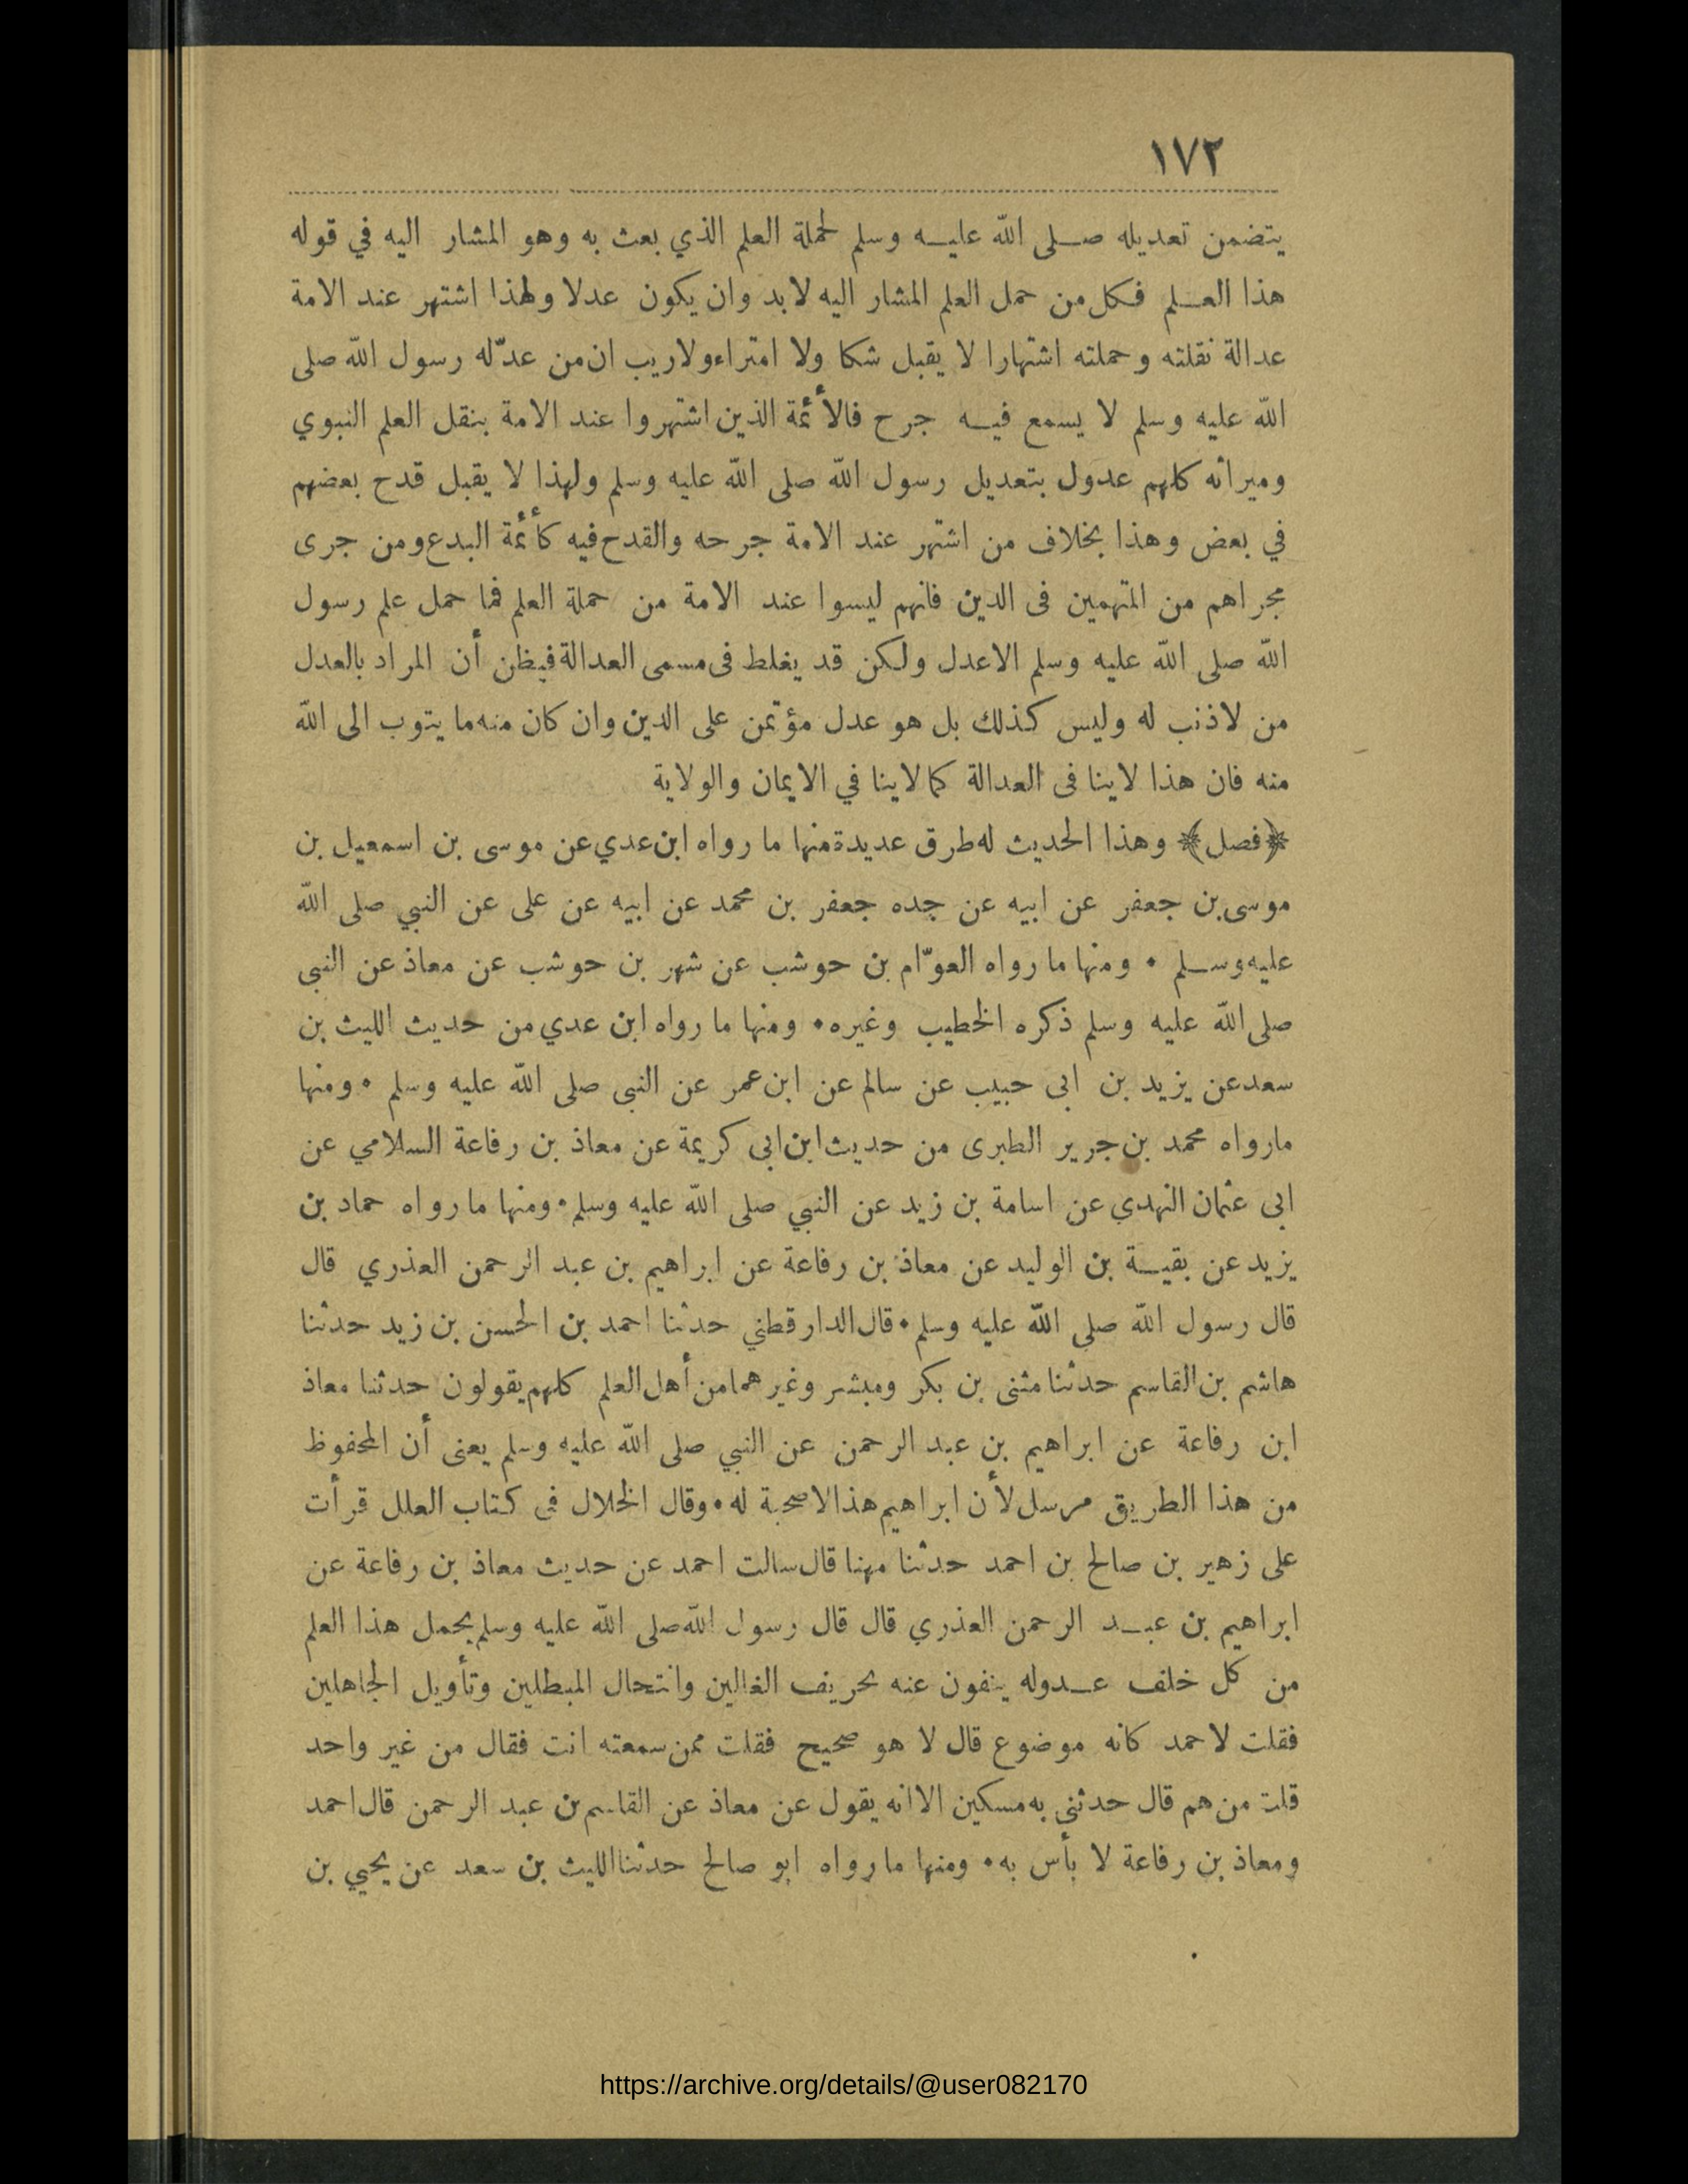 ١٧٢
يتضمن تعديله صلى الله عليه وسلم لحملة العلم الذي بعث به وهو المشار اليه في قوله
هذا العلم فكل من حمل العلم المشار اليه لا بد وان يكون عدلا ولهذا اشتهر عند الامة
عدالة نقلته وحملته اشتهارا لا يقبل شكا ولا امتراء ولا ريب ان من عدّله رسول الله صلى
الله عليه وسلم لا يسمع فيه جرح فالأئمة الذين اشتهروا عند الامة بنقل العلم النبوي
وميراثه كلهم عدول بتعديل رسول الله صلى الله عليه وسلم ولهذا لا يقبل قدح بعضهم
في بعض وهذا بخلاف من اشتهر عند الامة جرحه والقدح فيه كأئمة البدع ومن جرى
مجراهم من المتهمين فى الدين فانهم ليسوا عند الامة من حملة العلم فما حمل علم رسول
الله صلى الله عليه وسلم الا عدل ولكن قد يغلط فى مسمى العدالة فيظن أن المراد بالعدل
من لا ذنب له وليس كذلك بل هو عدل مؤتمن على الدين وان كان منه ما يتوب الى الله
منه فان هذا لا ينا فى العدالة كما لا ينا في الايمان والولاية
﴿فصل﴾ وهذا الحديث له طرق عديدة منها ما رواه ابن عدي عن موسى بن اسمعيل بن
موسى بن جعفر عن ابيه عن جده جعفر بن محمد عن ابيه عن على عن النبي صلى الله
عليه وسلم • ومنها ما رواه العوّام بن حوشب عن شهر بن حوشب عن معاذ عن النبى
صلى الله عليه وسلم ذكره الخطيب وغيره • ومنها ما رواه ابن عدي من حديث الليث بن
سعد عن يزيد بن ابى حبيب عن سالم عن ابن عمر عن النبى صلى الله عليه وسلم • ومنها
مارواه محمد بن جرير الطبرى من حديث ابن ابى كريمة عن معاذ بن رفاعة السلامي عن
ابى عثمان النهدي عن اسامة بن زيد عن النبي صلى الله عليه وسلم • ومنها ما رواه حماد بن
يزيد عن بقية بن الوليد عن معاذ بن رفاعة عن ابراهيم بن عبد الرحمن العذري قال
قال رسول الله صلى الله عليه وسلم • قال الدارقطني حدثنا احمد بن الحسن بن زيد حدثنا
هاشم بن القاسم حدثنا مثنى بن بكر ومبشر وغيرهما من أهل العلم كلهم يقولون حدثنا معاذ
ابن رفاعة عن ابراهيم بن عبد الرحمن عن النبي صلى الله عليه وسلم يعنى أن المحفوظ
من هذا الطريق مرسل لأن ابراهيم هذا لا صحبة له • وقال الخلال في كتاب العلل قرأت
على زهير بن صالح بن احمد حدثنا مهنا قال سالت احمد عن حديث معاذ بن رفاعة عن
ابراهيم بن عبد الرحمن العذري قال قال رسول الله صلى الله عليه وسلم يحمل هذا العلم
من كل خلف عدوله ينفون عنه تحريف الغالين وانتحال المبطلين وتأويل الجاهلين
فقلت لاحمد كانه موضوع قال لا هو صحيح فقلت ممن سمعته انت فقال من غير واحد
قلت من هم قال حدثنى به مسكين الا انه يقول عن معاذ عن القاسم بن عبد الرحمن قال احمد
ومعاذ بن رفاعة لا بأس به • ومنها ما رواه ابو صالح حدثنا الليث بن سعد عن يحيي بن
https://archive.org/details/@user082170